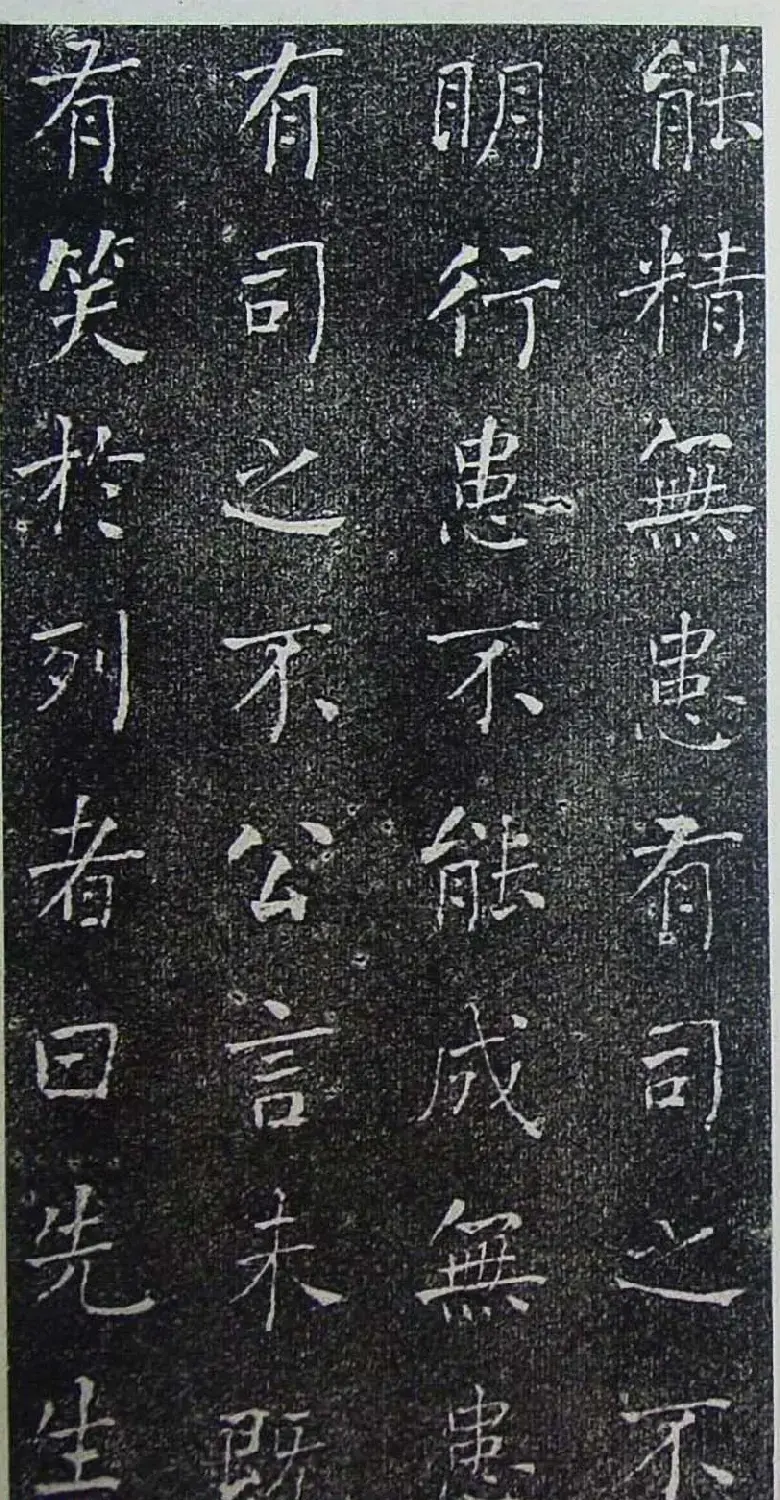 能精無患有司之不
明行患不能成無患
有司之不公言未既
有笑於列者曰先生